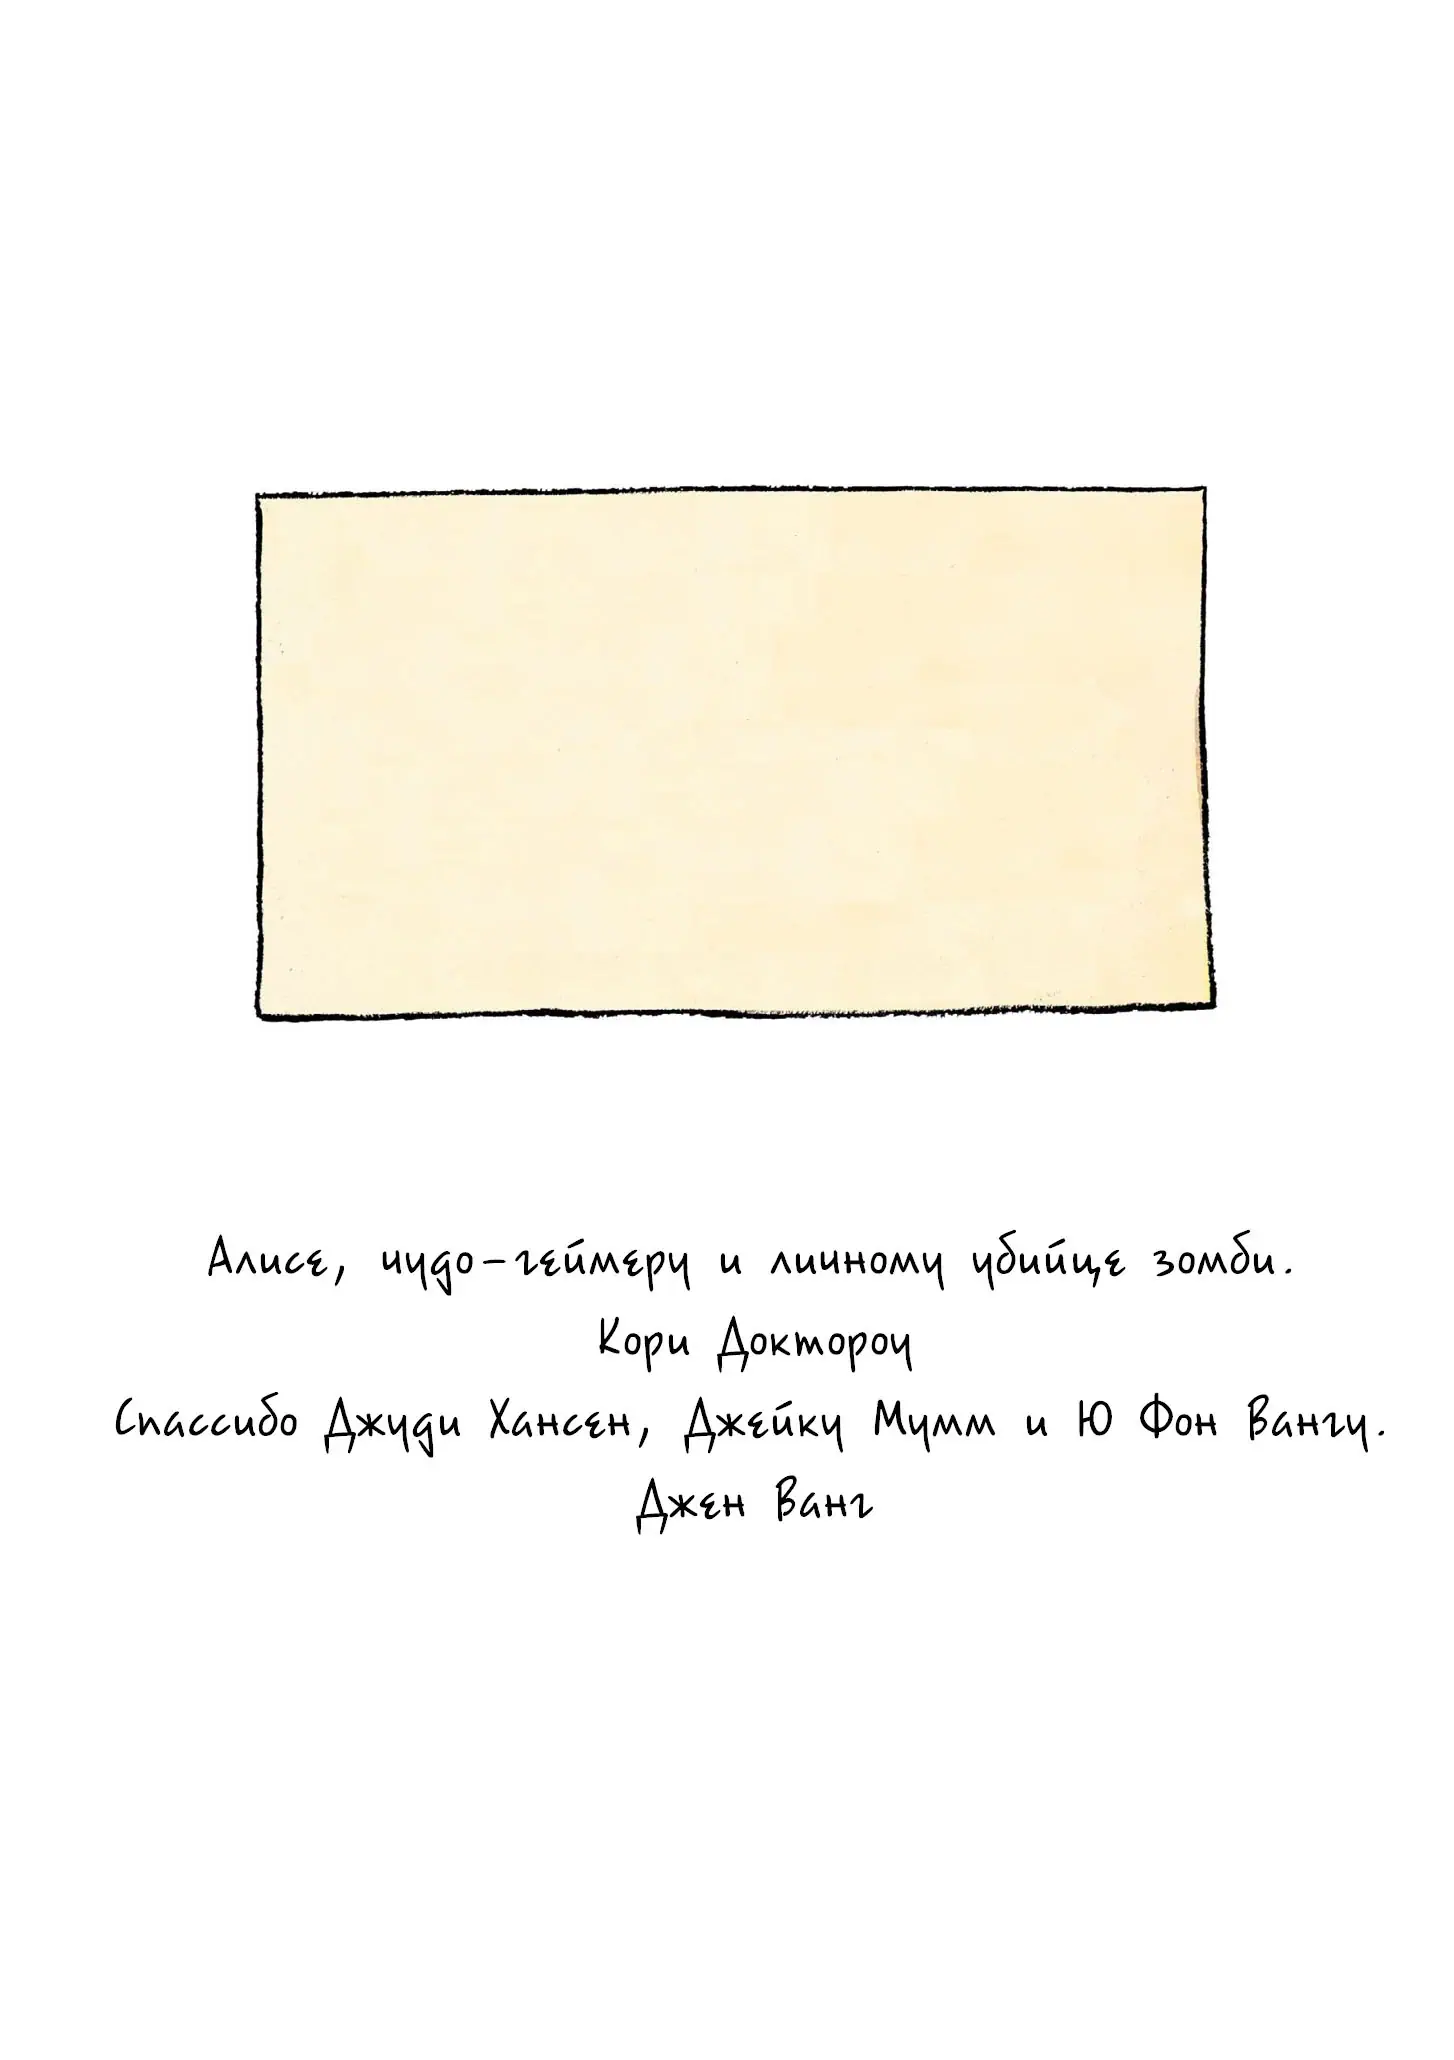 Алисе, чудо-геймеру и личному убийце зомби.
Кори Доктороу
Спассибо Джуди Хансен, Джейку Мумм и Ю Фон Вангу.
Джен Ванг